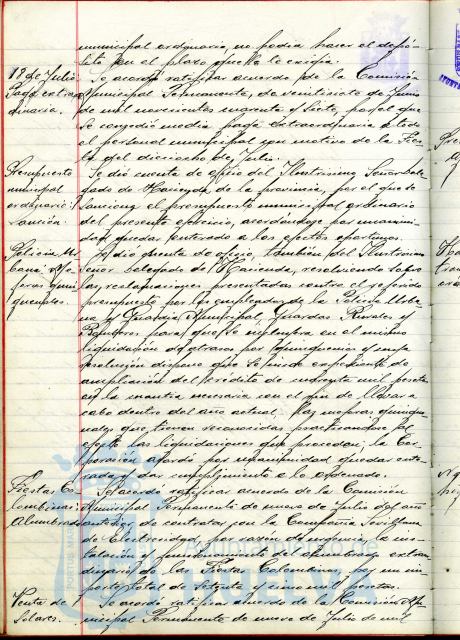 municipal ordinario, no podía hacer el depó-
sito en el plazo que se le exigía.
18 de Julio Se acordó ratificar acuerdo de la Comisión
Paga extraor Municipal Permanente, de veintisiete de Junio
dinaria. de mil novecientos cuarenta y siete, por el que
se concedió media paga extraordinaria a todo
el personal municipal con motivo de la Fies-
ta del dieciocho de Julio.
Presupuesto Se dió cuenta de oficio del Ilustrísimo Señor Dele-
municipal gado de Hacienda de la provincia, por el que se
ordinario: sanciona el presupuesto municipal ordinario
Sanción. del presente ejercicio, acordándose por unanimi-
dad quedar enterado a los efectos oportunos.
Policía Ur- Se dió cuenta de oficio, también del Ilustrísimo
bana: Señor Delegado de Hacienda, resolviendo sobre
quin- las reclamaciones presentadas contra el referido
quenales. presupuesto por los empleados de la Policía Urba-
na y Guardia Municipal, Guardas Rurales y
Bomberos para que se
liquidación de atrasos por quinquenios y cuya
resolución dispone que se expediente de
ampliación del crédito de mil pesetas
en la cuantía necesaria con el fin de llevar a
cabo dentro del año actual las mejoras quinque-
nales que tienen reconocidas practicándose al
efecto las liquidaciones que procedan, la Cor-
poración acordó por unanimidad quedar ente-
rada y dar cumplimiento a lo ordenado.
Fiestas Co- Se acordó ratificar acuerdo de la Comisión
lombinas: Municipal Permanente de nueve de Julio del año
Alumbrado anterior de contratar con la Compañía Sevillana
de Electricidad, por razón de urgencia la ins-
talación y funcionamiento de alumbrado extra-
de las Fiestas Colombinas por un im-
porte total de mil pesetas.
Venta de Se acordó ratificar acuerdo de la Comisión Mu-
Solares. nicipal Permanente de nueve de Julio de mil
Ayuntamiento de
HUELVA